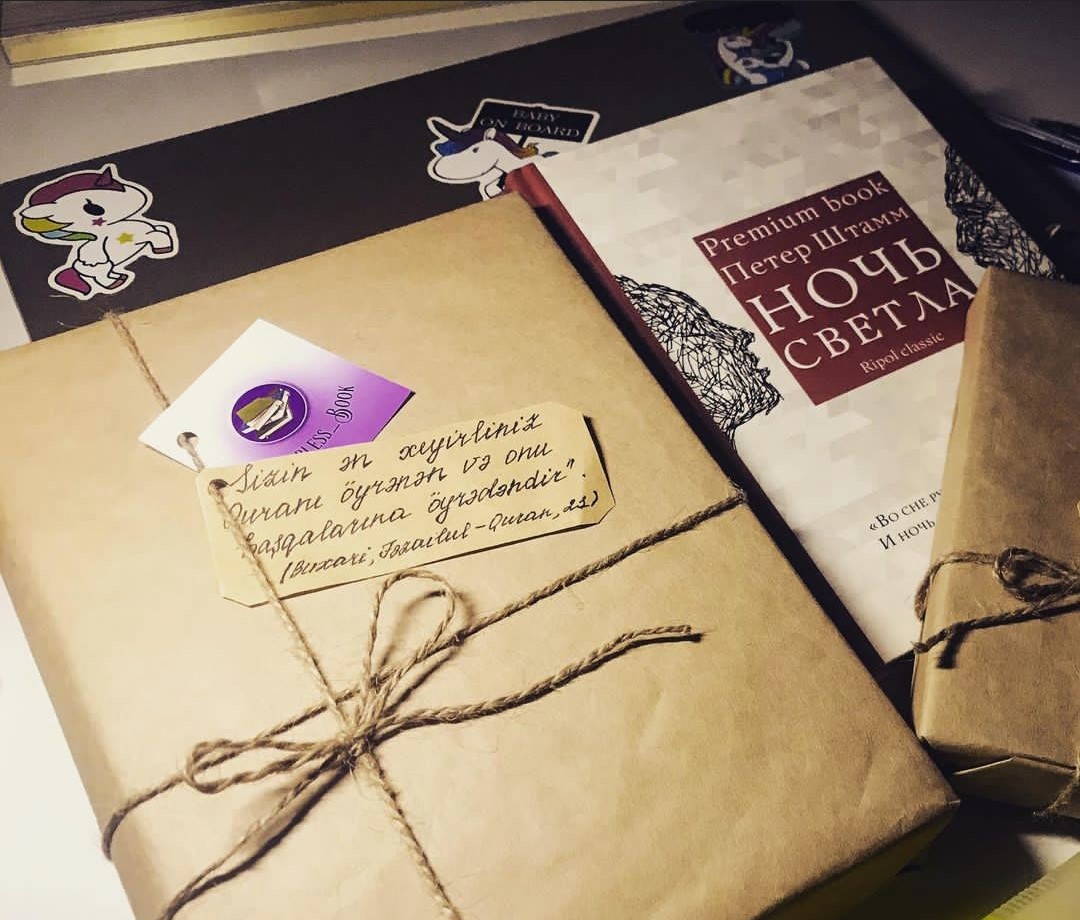 BABY
ON BOARD
Premium book
Петер Штамм
НОЧЬ
СВЕТЛА
Ripol classic
«Во сне
И ночь
LESS_BOOK
Sizin ən xeyirliniz
Quranı öyrənən və onu
başqalarına öyrədəndir".
(Buxari, Fəzailul-Quran, 21)